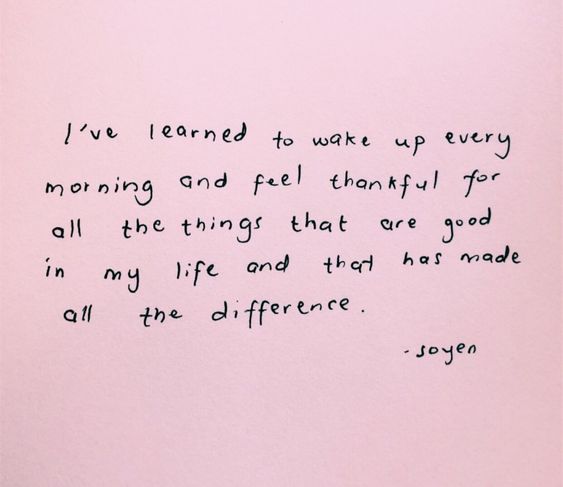 I've learned to wake up every
morning and feel thankful for
all the things that are good
in my life and that has made
all the difference.
-soyen